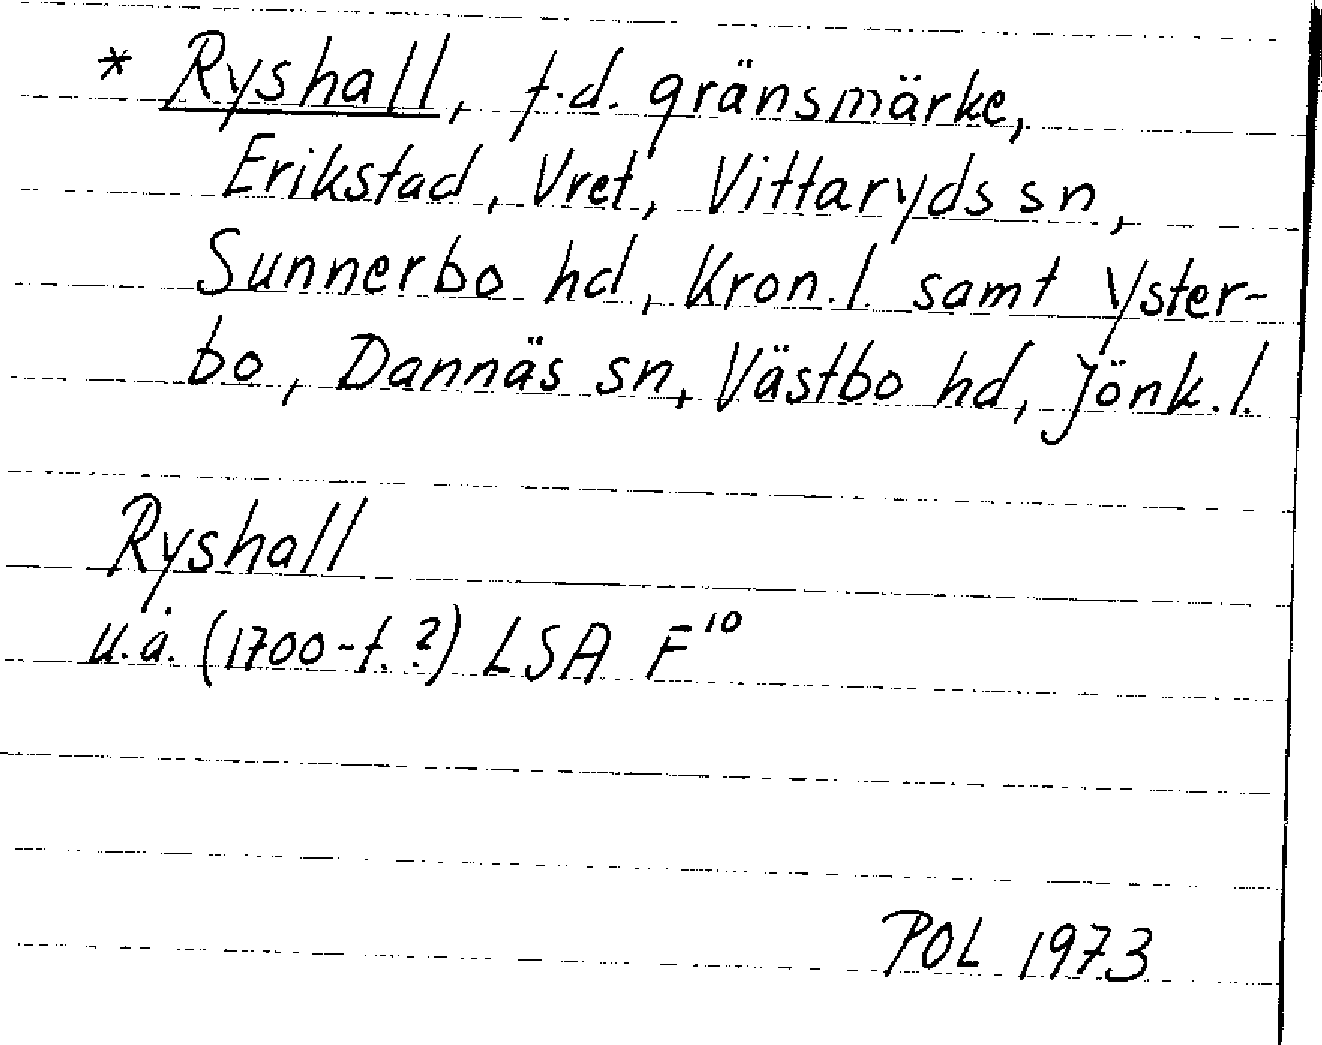 * Ryshall, f.d. gränsmärke,
Erikstad, Vret, Vittaryds sn,
Sunnerbo hd, Kron.l. samt Yster-
bo, Dannäs sn, Västbo hd, Jönk.l.
Ryshall
u.å. (1700-t.?) LSA F¹⁰
POL 1973